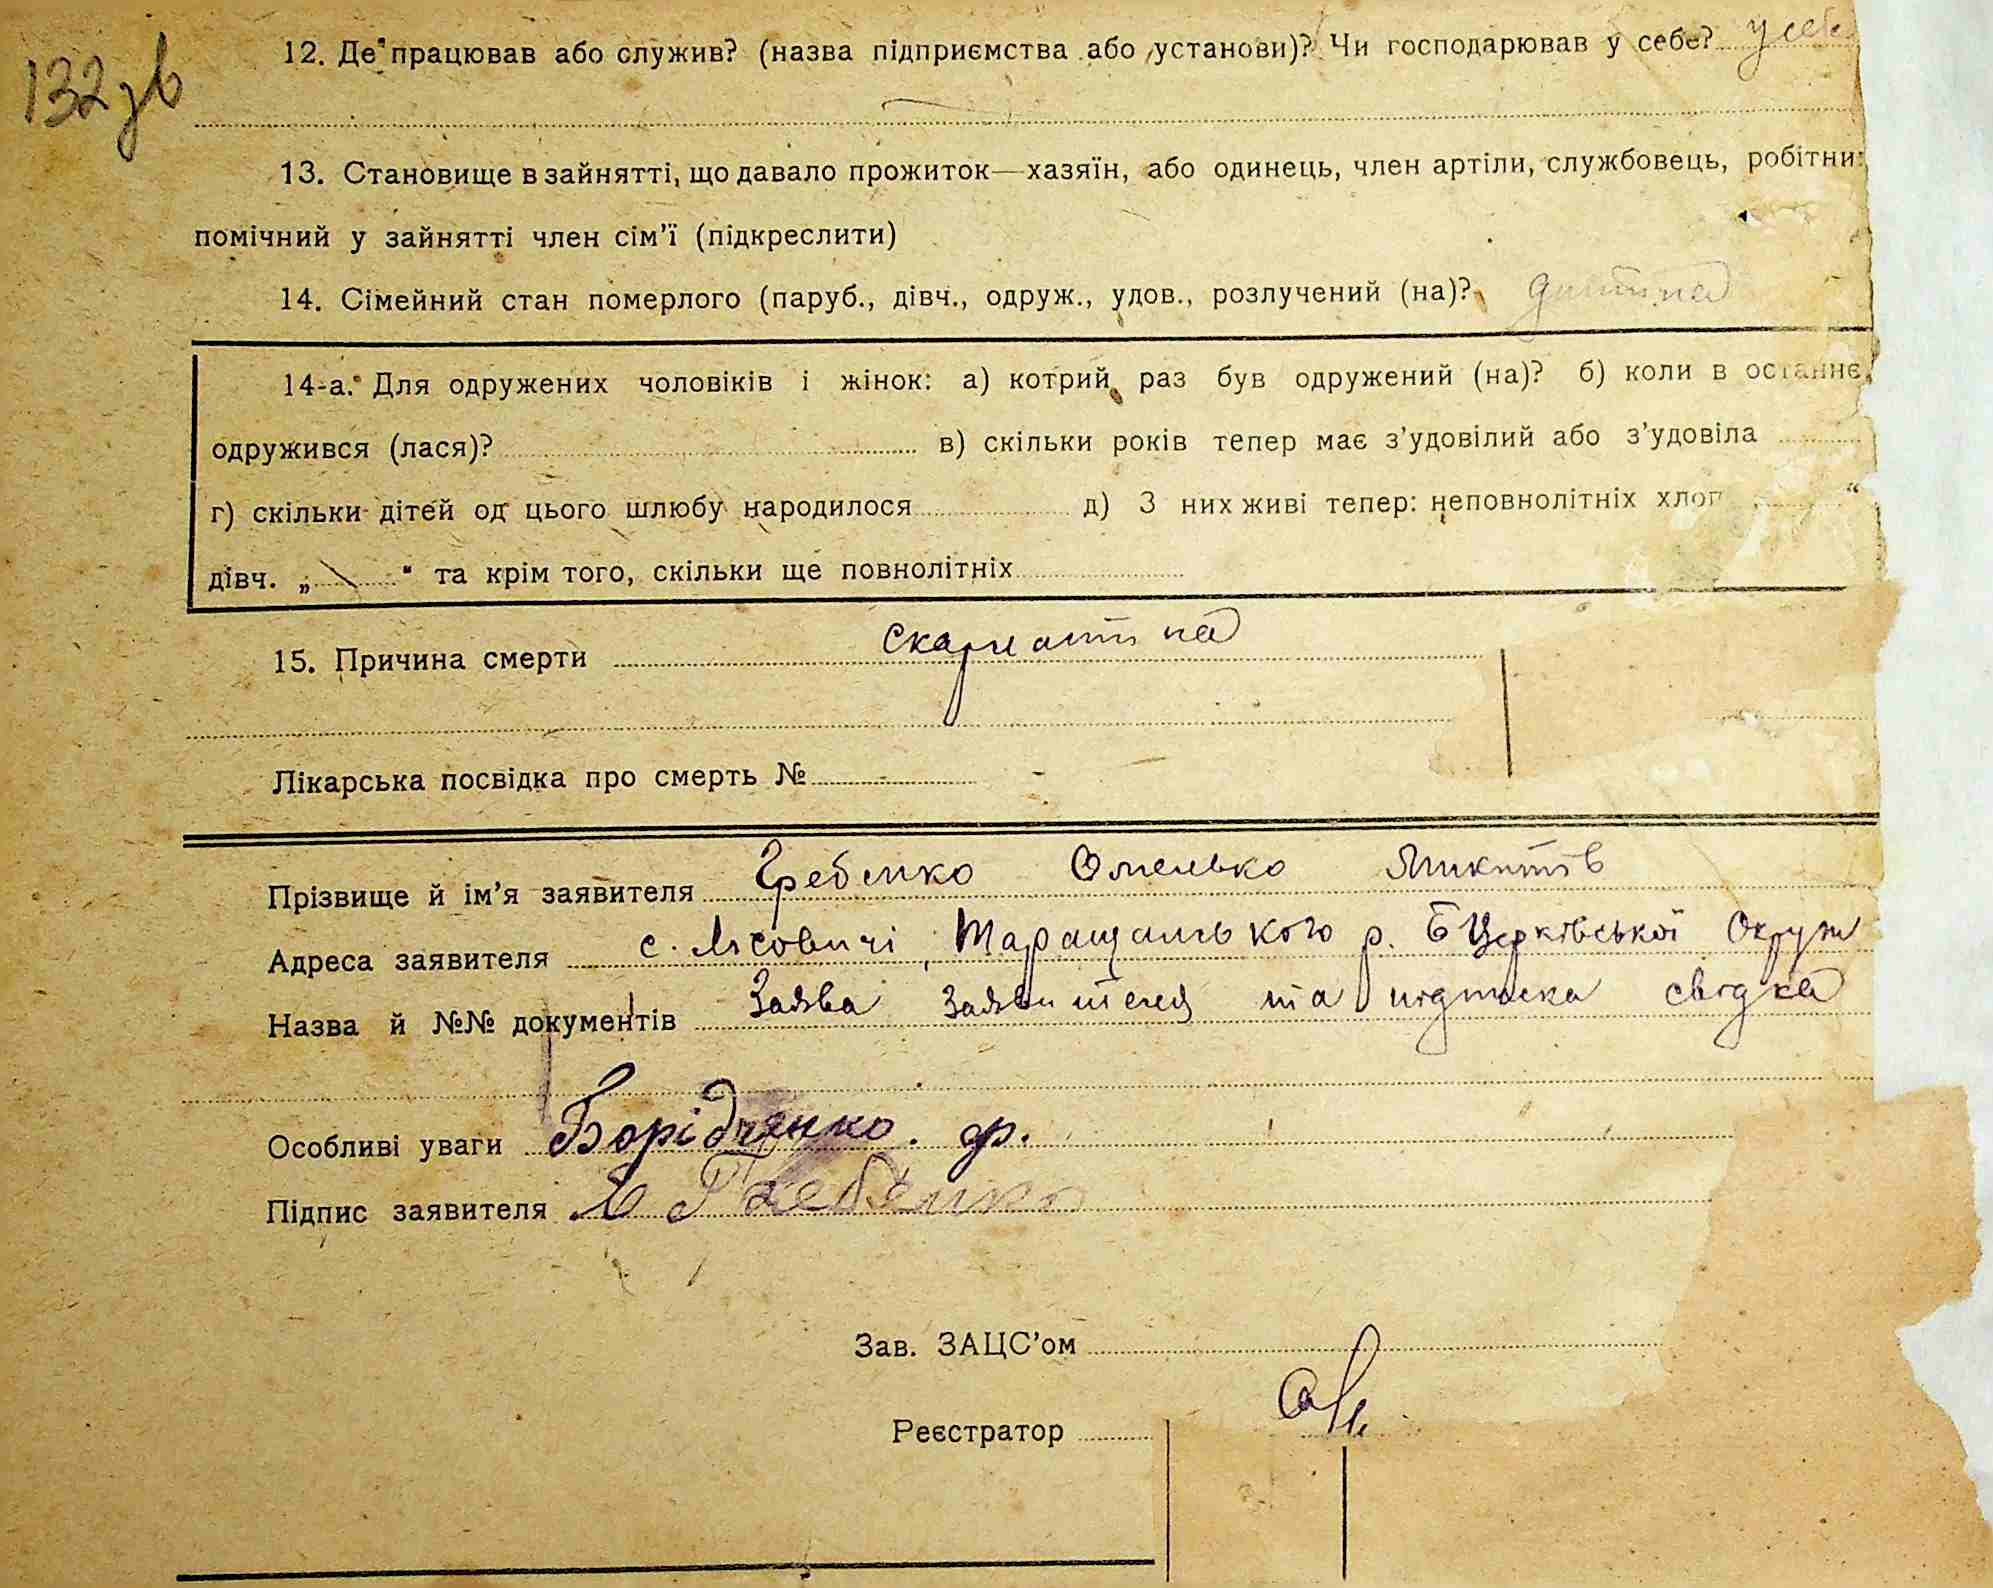 132зв
12. Де працював або служив? (назва підприємства або установи)? Чи господарював у себе? у себе
13. Становище в зайнятті, що давало прожиток—хазяїн, або одинець, член артіли, службовець, робітни
помічний у зайнятті член сім'ї (підкреслити)
14. Сімейний стан померлого (паруб., дівч., одруж., удов., розлучений (на)? дитина
14-а. Для одружених чоловіків і жінок: а) котрий раз був одружений (на)? б) коли в останнє
одружився (лася)? в) скільки років тепер має з'удовілий або з'удовіла
г) скільки дітей од цього шлюбу народилося д) З них живі тепер: неповнолітніх хлоп "
дівч. „ " та крім того, скільки ще повнолітніх
15. Причина смерти скарлатина
Лікарська посвідка про смерть № -
Прізвище й ім'я заявителя Гребенко Омелько Микитів
Адреса заявителя с. Лісовичі, Таращанського р. БЦерківської Округи
Назва й №№ документів Заява заявителя та підписка свідка
Особливі уваги Борідченко. ф.
Підпис заявителя О Гребенко
Зав. ЗАЦС'ом
Реєстратор